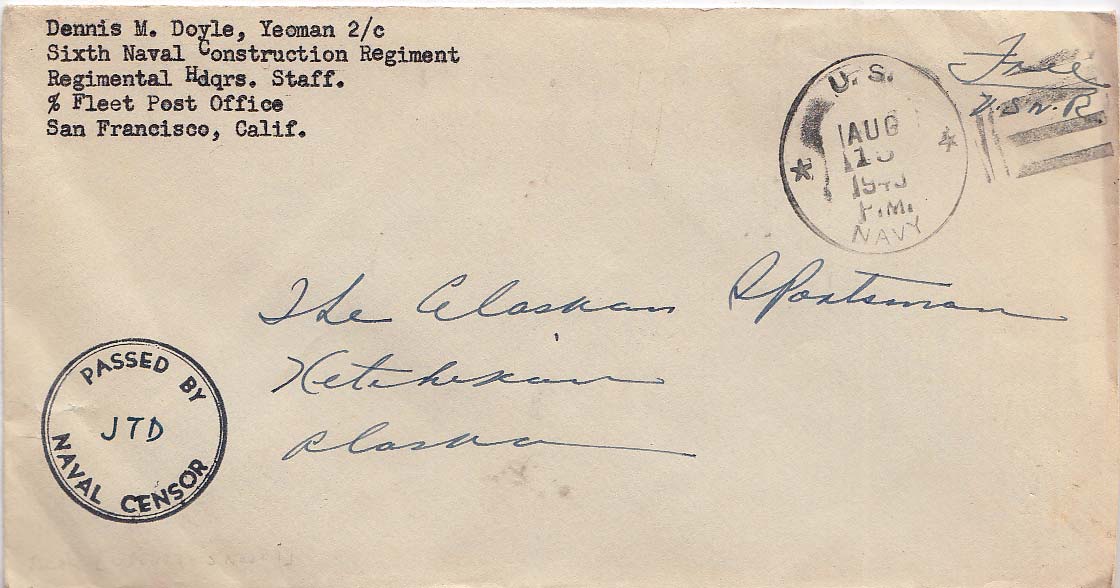 Dennis M. Doyle, Yeoman 2/c
Sixth Naval Construction Regiment
Regimental Hdqrs. Staff.
% Fleet Post Office
San Francisco, Calif.
Free
U.S.N.R.
U.S.
AUG
1943
P.M.
NAVY
The Alaskan Sportsman
Ketchikan
Alaska
PASSED BY
JTD
NAVAL CENSOR